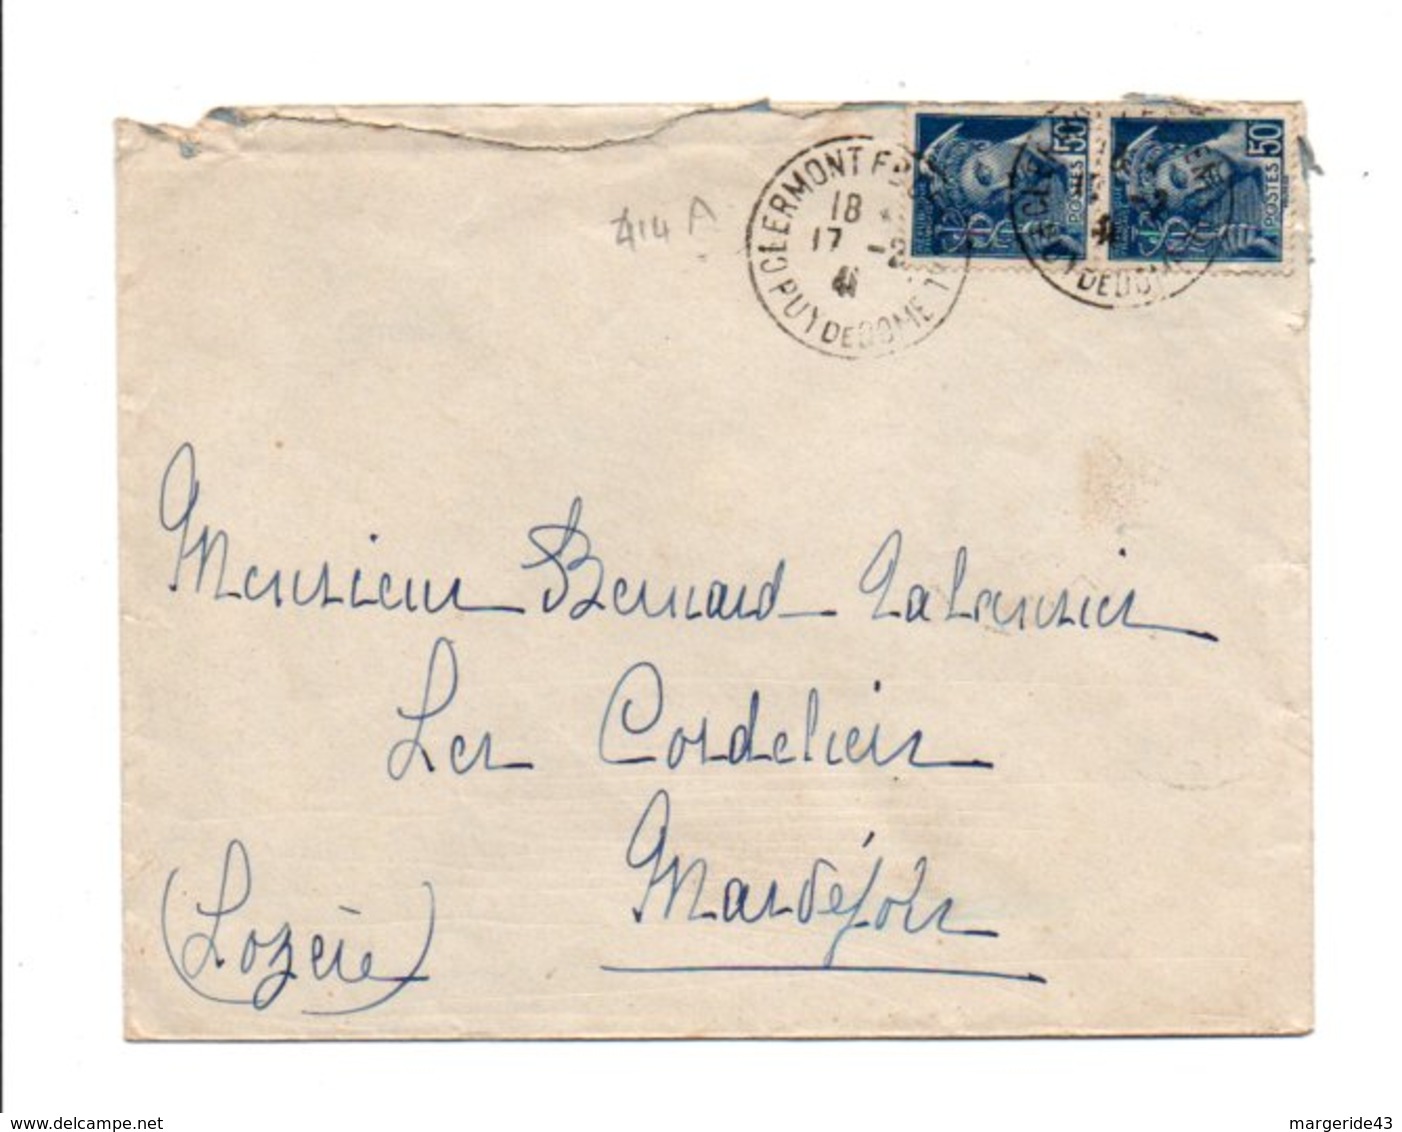 414 A
CLERMONT FD
18
17 -2
41
PUY DE DOME
50
POSTES
50
POSTES
Monsieur Bernard
Les Cordeliers
Marvéjols
(Lozère)
delcampe.net
margeride43